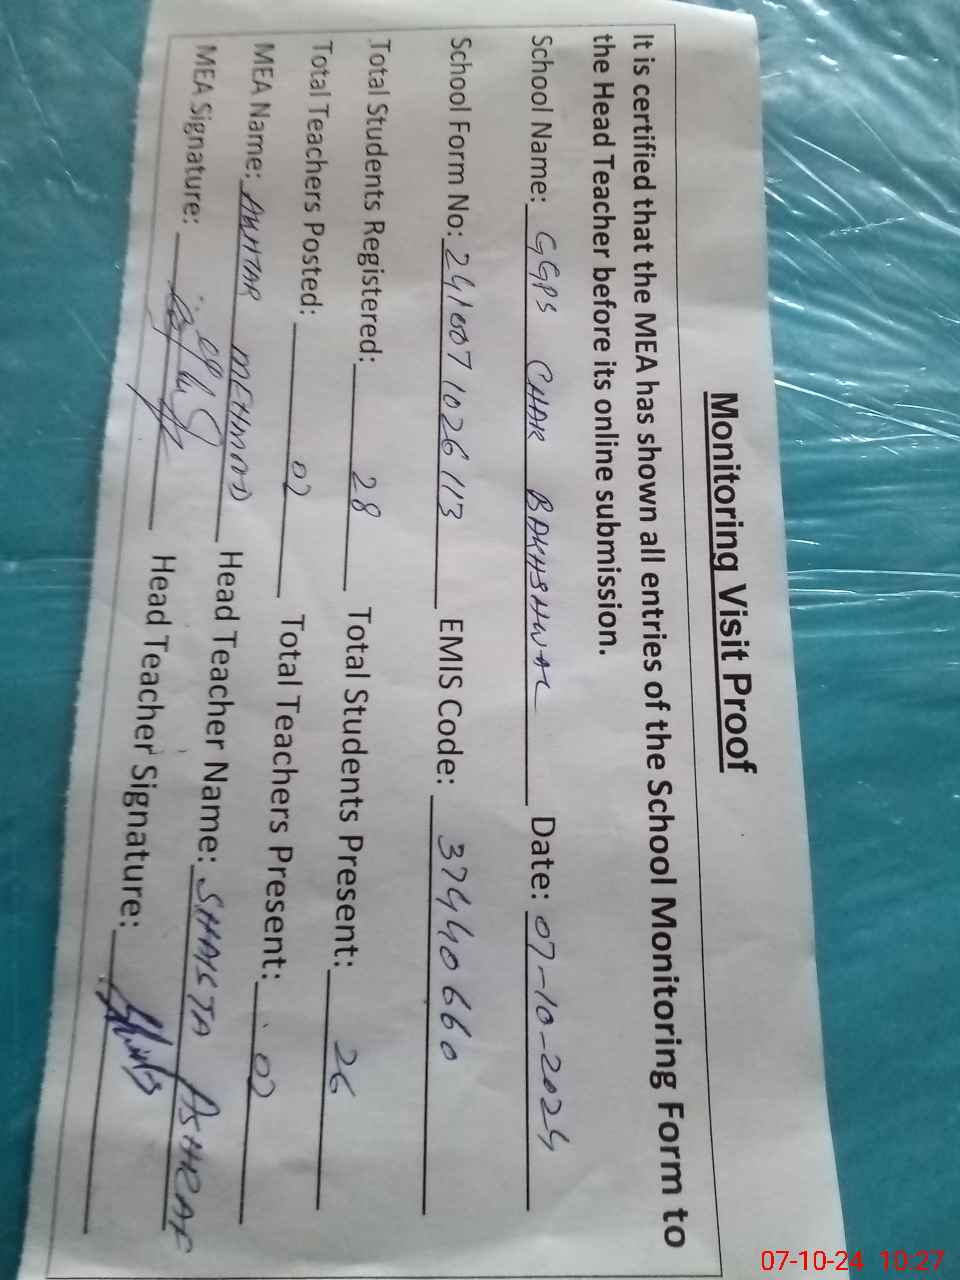 Monitoring Visit Proof
It is certified that the MEA has shown all entries of the School Monitoring Form to
the Head Teacher before its online submission.
School Name: GGPS CHAK BAKHSHWAL Date: 07-10-2024
School Form No: 241007 1026 113 EMIS Code: 37440660
Total Students Registered: 28 Total Students Present: 26
Total Teachers Posted: 02 Total Teachers Present: 02
MEA Name: AKHTAR MEHMOOD Head Teacher Name: SHAISTA ASHRAF
MEA Signature: Head Teacher Signature:
07-10-24 10:27